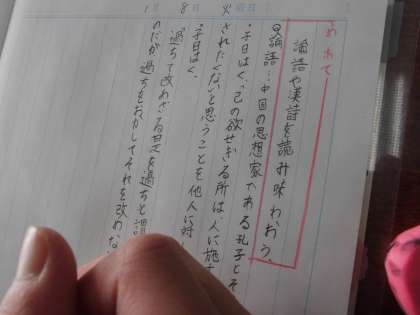 めあて
論語や漢詩を読み味わおう。
論語…中国の思想家である孔子とそ
子曰はく、「己の欲せざる所は、人に施
されたくないと思うことを他人に対
子曰はく、
「過ちて改めざる是を過ちと謂
のだが過ちをおかしてそれを改めな
1月 8日 火曜日